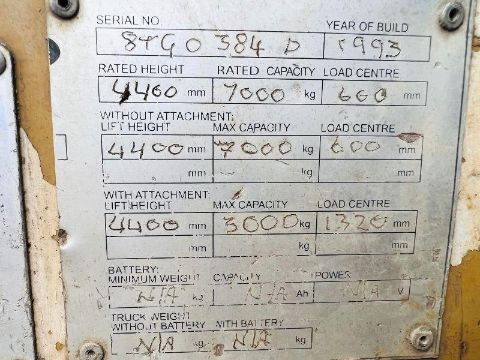 SERIAL NO YEAR OF BUILD
8TG0384D 1993
RATED HEIGHT RATED CAPACITY LOAD CENTRE
4400 mm 7000 kg 600 mm
WITHOUT ATTACHMENT:
LIFT HEIGHT MAX CAPACITY LOAD CENTRE
4400 mm 7000 kg 600 mm
mm kg mm
WITH ATTACHMENT:
LIFT HEIGHT MAX CAPACITY LOAD CENTRE
4400 mm 3000 kg 1320 mm
mm kg mm
BATTERY:
MINIMUM WEIGHT CAPACITY POWER
N/A kg N/A Ah N/A V
TRUCK WEIGHT
WITHOUT BATTERY WITH BATTERY
N/A kg N/A kg